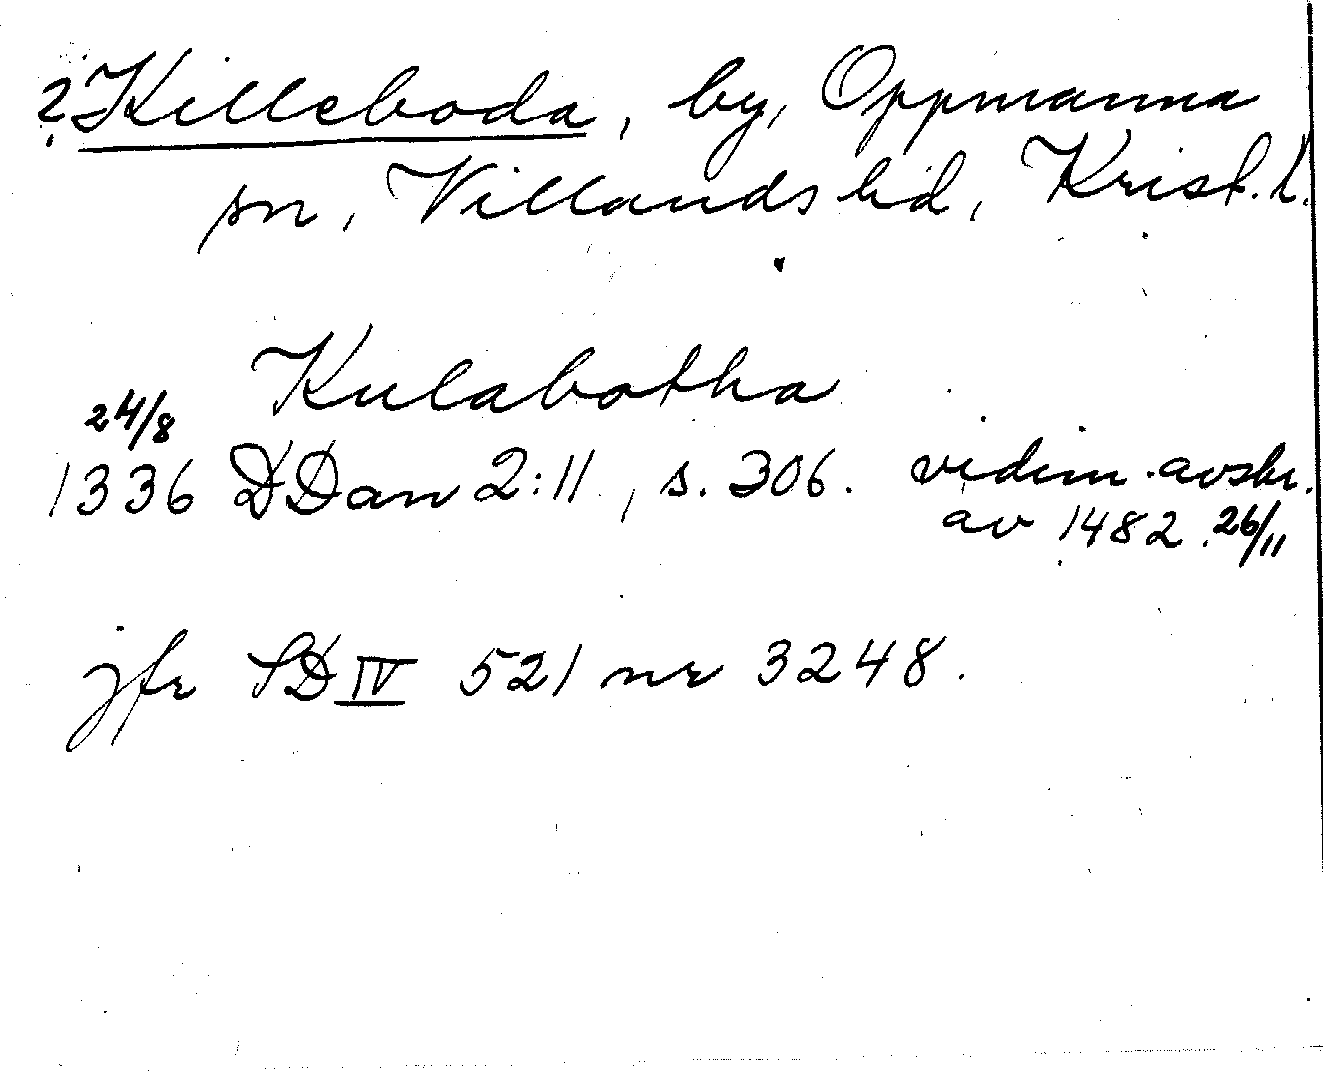 ? Killeboda, by, Oppmanna
sn, Villands hd, Krist. l.
Kulabotha
24/8
1336 DDan 2:11, s. 306. vidim. avskr.
av 1482 26/11
jfr SD IV 521 nr 3248.